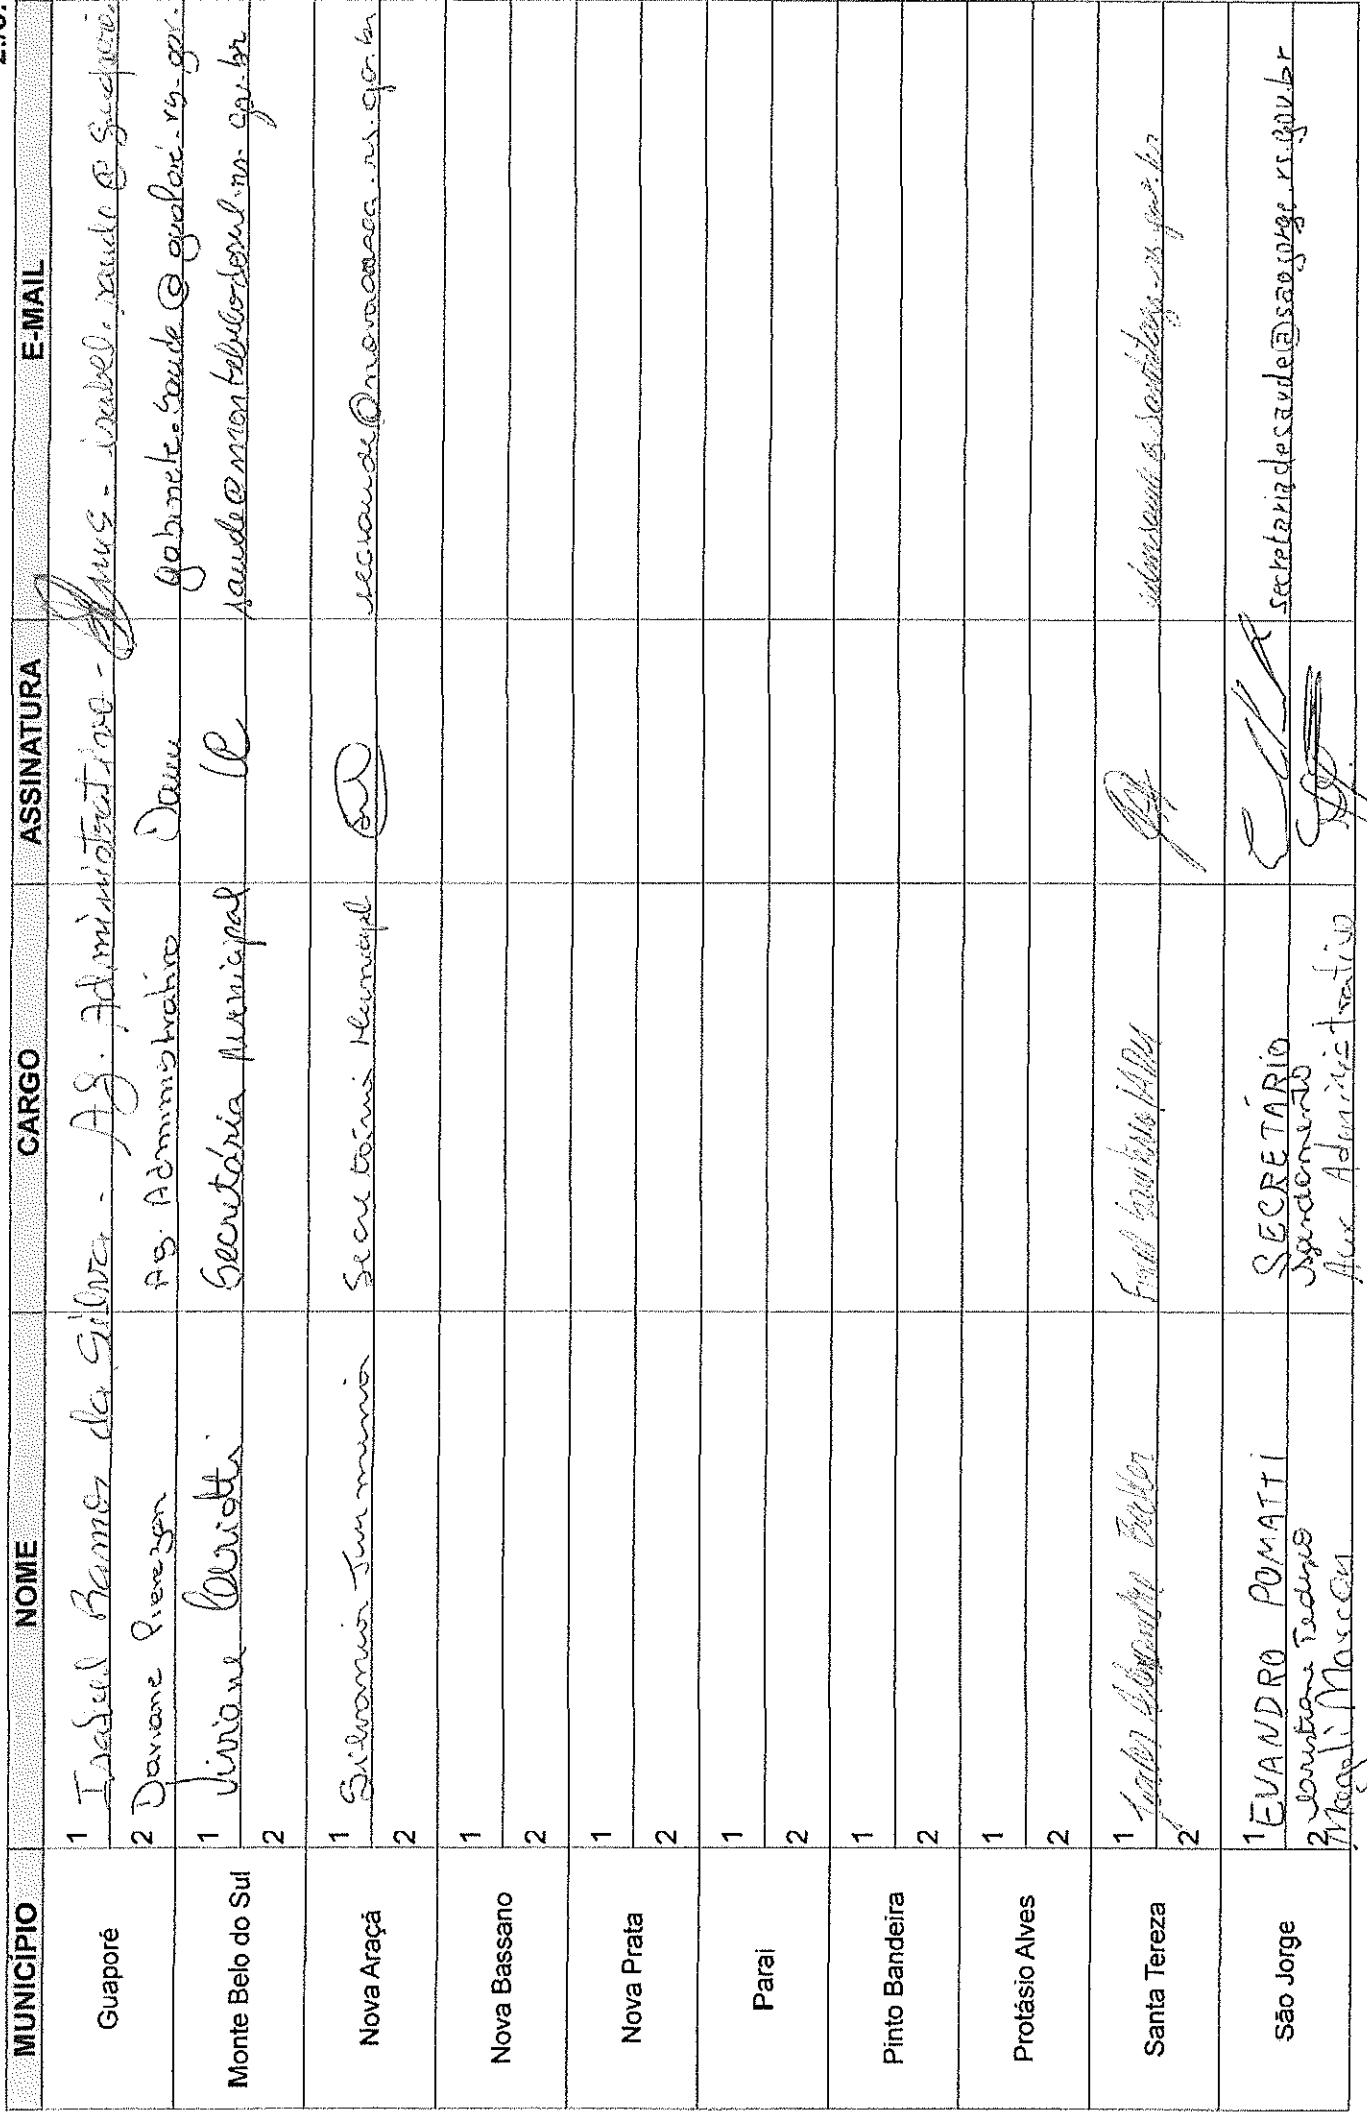 MUNICÍPIO NOME CARGO ASSINATURA E-MAIL
Guaporé
1 Isabel Ramos da Silva - Ag. Administrativo -
2 Daviane Pierezan Ag. Administrativo Davi gabinete.saude@guaporé.rs.gov.
Monte Belo do Sul
1 Viviane Secretária Municipal saude@montebelodosul.rs.gov.br
2
Nova Araçá
1 Silvania Secretária Municipal secsaude@novaaraca.rs.gov.br
2
Nova Bassano
1
2
Nova Prata
1
2
Parai
1
2
Pinto Bandeira
1
2
Protásio Alves
1
2
Santa Tereza
1
2
São Jorge
1 EVANDRO POMATTI SECRETÁRIO secretariadesaude@saojorge.rs.gov.br
2 Agendamento
Magali Marcon Aux Administrativo